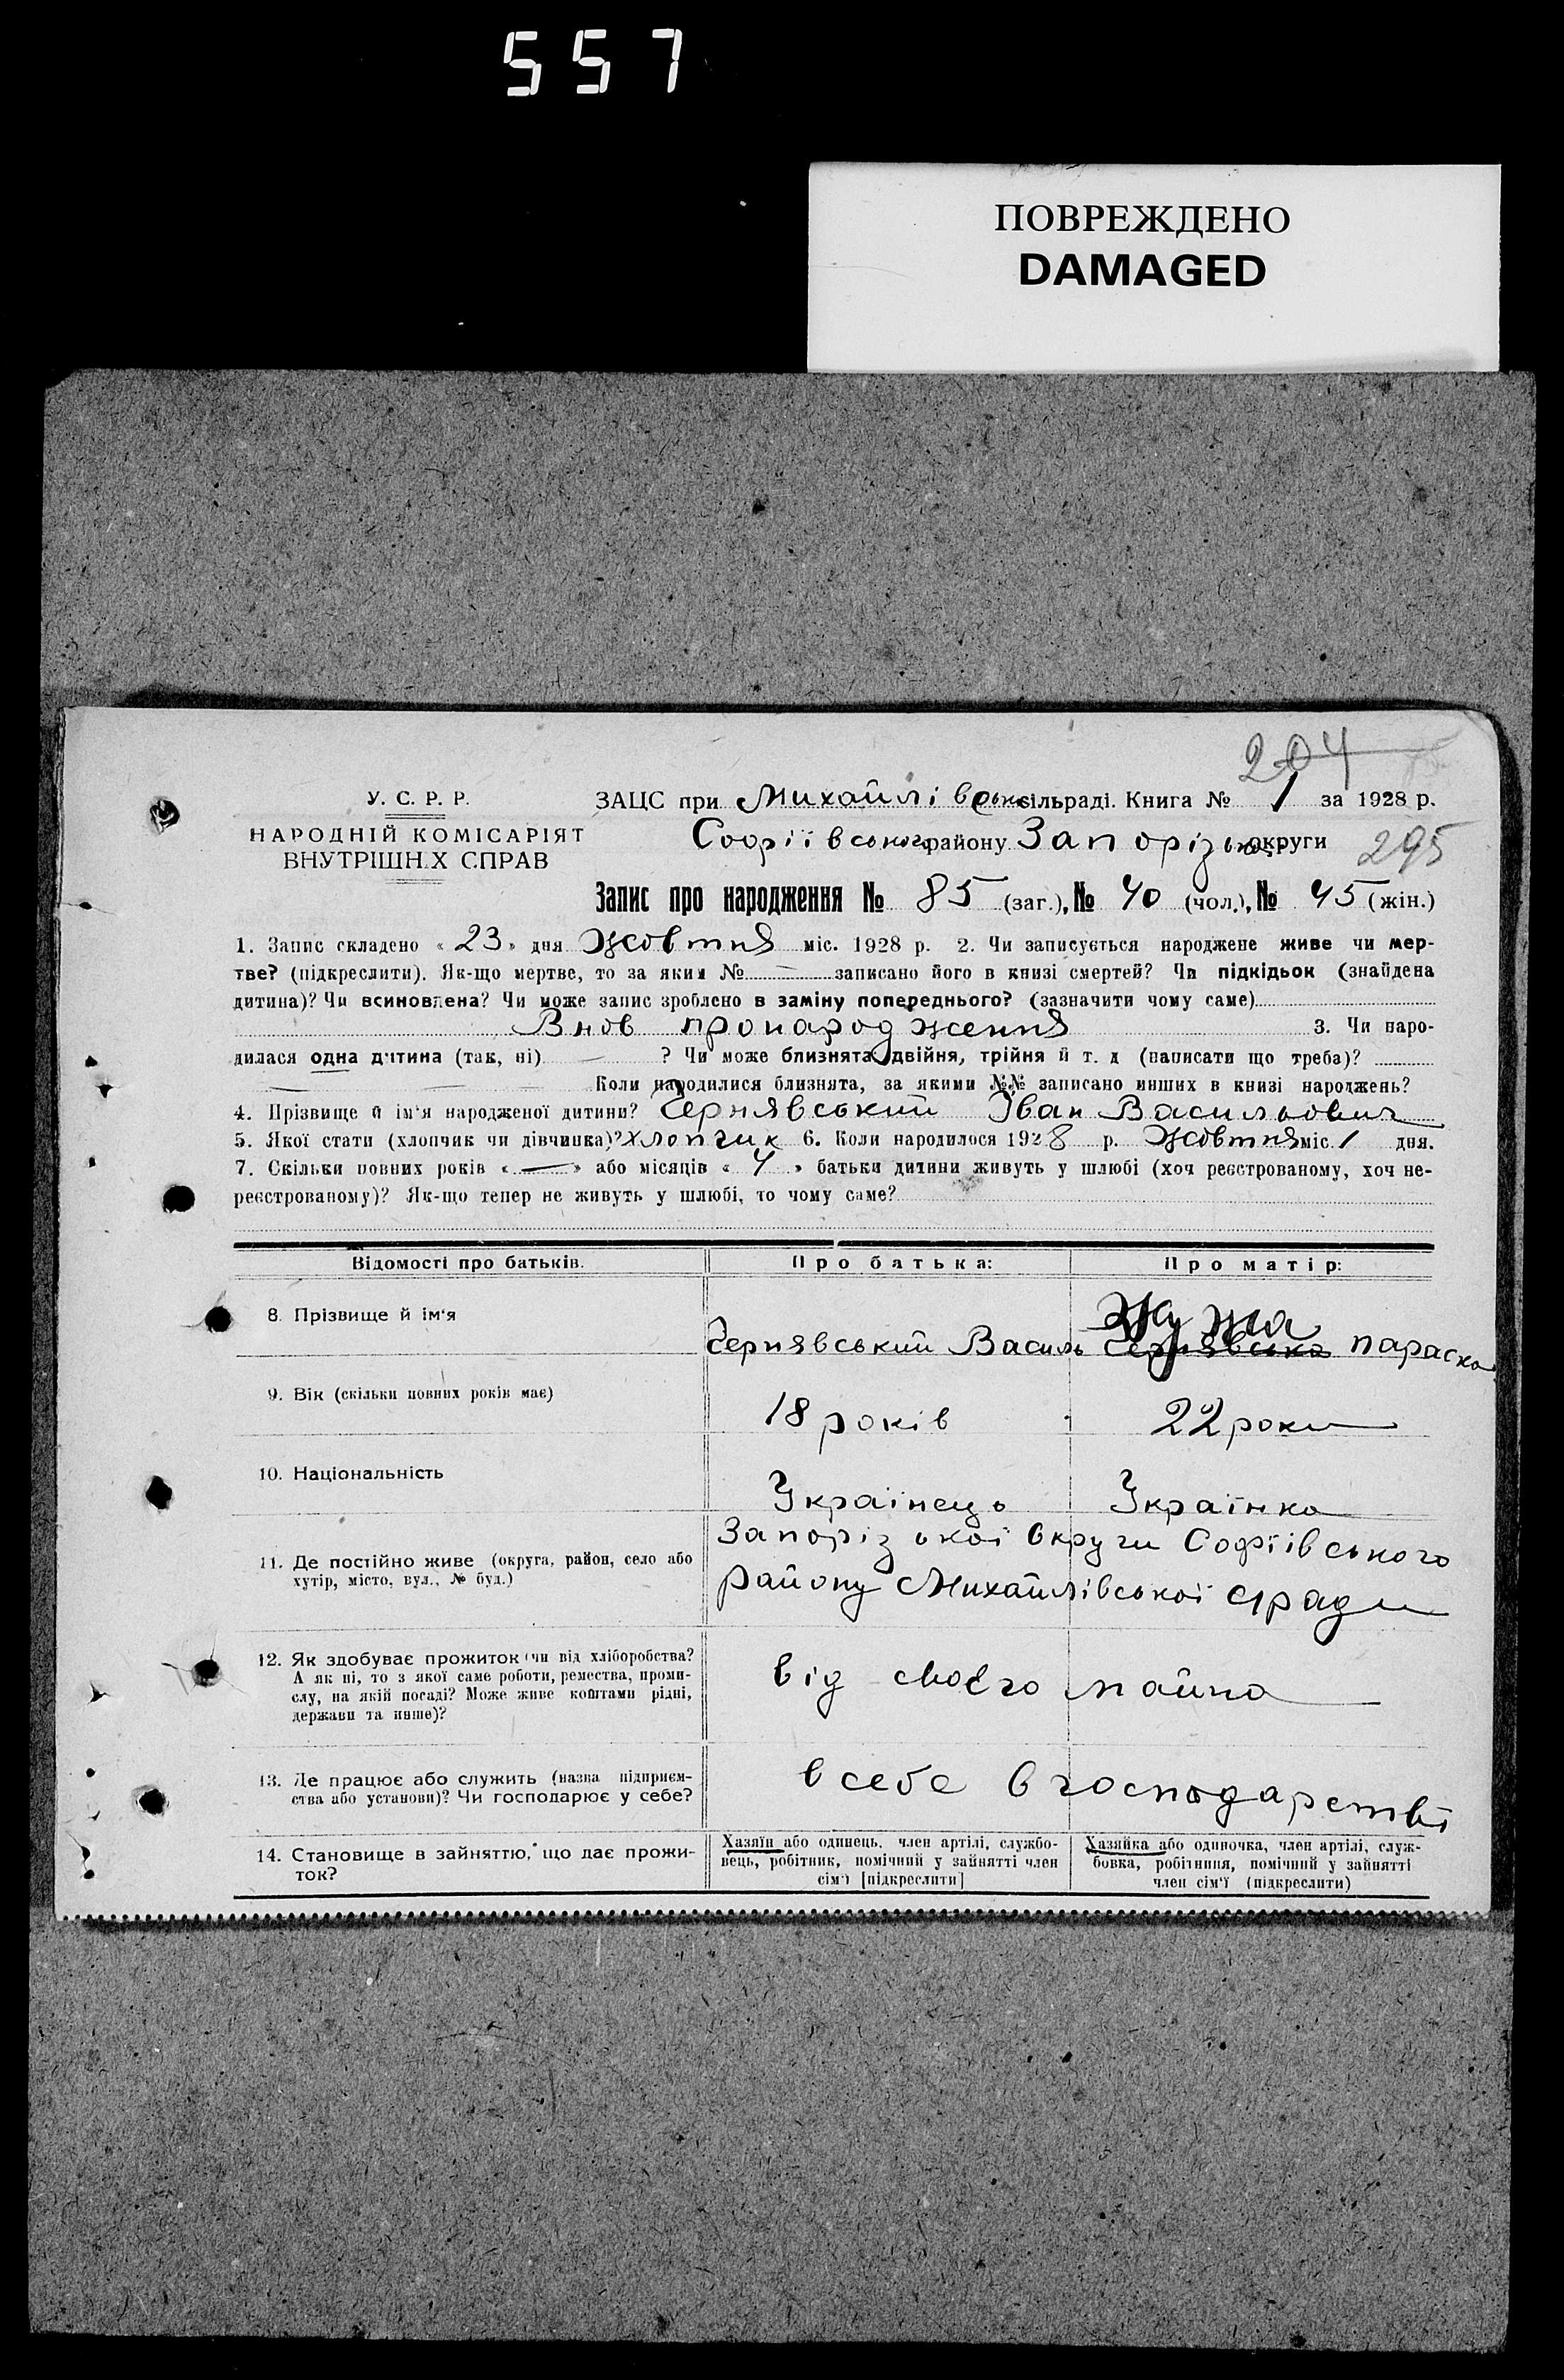 557
ПОВРЕЖДЕНО
DAMAGED
204
У. С. Р. Р.
НАРОДНІЙ КОМІСАРІЯТ
ВНУТРІШН.Х СПРАВ
ЗАЦС при Михайлівськ сільраді. Книга № 1 за 1928 р.
Софіївського району Запорізько округи
295
Запис про народження № 85 (заг.), № 40 (чол.), № 45 (жін.)
1. Запис складено « 23 » дня Жовтня міс. 1928 р. 2. Чи записується народжене живе чи мер-
тве? (підкреслити). Як-що мертве, то за яким № — записано його в книзі смертей? Чи підкідьок (знайдена
дитина)? Чи всиновлена? Чи може запис зроблено в заміну попереднього? (зазначити чому саме)
Внов пронародження 3. Чи наро-
дилася одна дитина (так, ні) — ? Чи може близнята, двійня, трійня й т. д (написати що треба)?
— — Коли народилися близнята, за якими №№ записано инших в книзі народжень?
4. Прізвище й ім'я народженої дитини? Чернявський Іван Васильович
5. Якої стати (хлопчик чи дівчинка)? хлопчик 6. Коли народилося 1928 р. Жовтня міс. 1 дня.
7. Скільки повних років « — » або місяців « 4 » батьки дитини живуть у шлюбі (хоч реєстрованому, хоч не-
реєстрованому)? Як-що тепер не живуть у шлюбі, то чому саме?
Відомості про батьків.
Про батька:
Про матір:
8. Прізвище й ім'я
Чернявський Василь
Жужа
Чернявська Параска
9. Вік (скільки повних років має)
18 років
22 роки
10. Національність
Українець
Українка
11. Де постійно живе (округа, район, село або
хутір, місто, вул., № буд.)
Запорізької округи Софіівського
району Михайлівської с/ради
12. Як здобуває прожиток (чи від хліборобства?
А як ні, то з якої саме роботи, ремества, проми-
слу, на якій посаді? Може живе коштами рідні,
держави та инше)?
від своєго майна
13. Де працює або служить (назва підприєм-
ства або установи)? Чи господарює у себе?
в себе в господарстві
14. Становище в зайняттю, що дає прожи-
ток?
Хазяїн або одинець, член артілі, службо-
вець, робітник, помічний у зайнятті член
сім'ї [підкреслити]
Хазяйка або одиночка, член артілі, служ-
бовка, робітниця, помічний у зайнятті
член сім'ї (підкреслити)